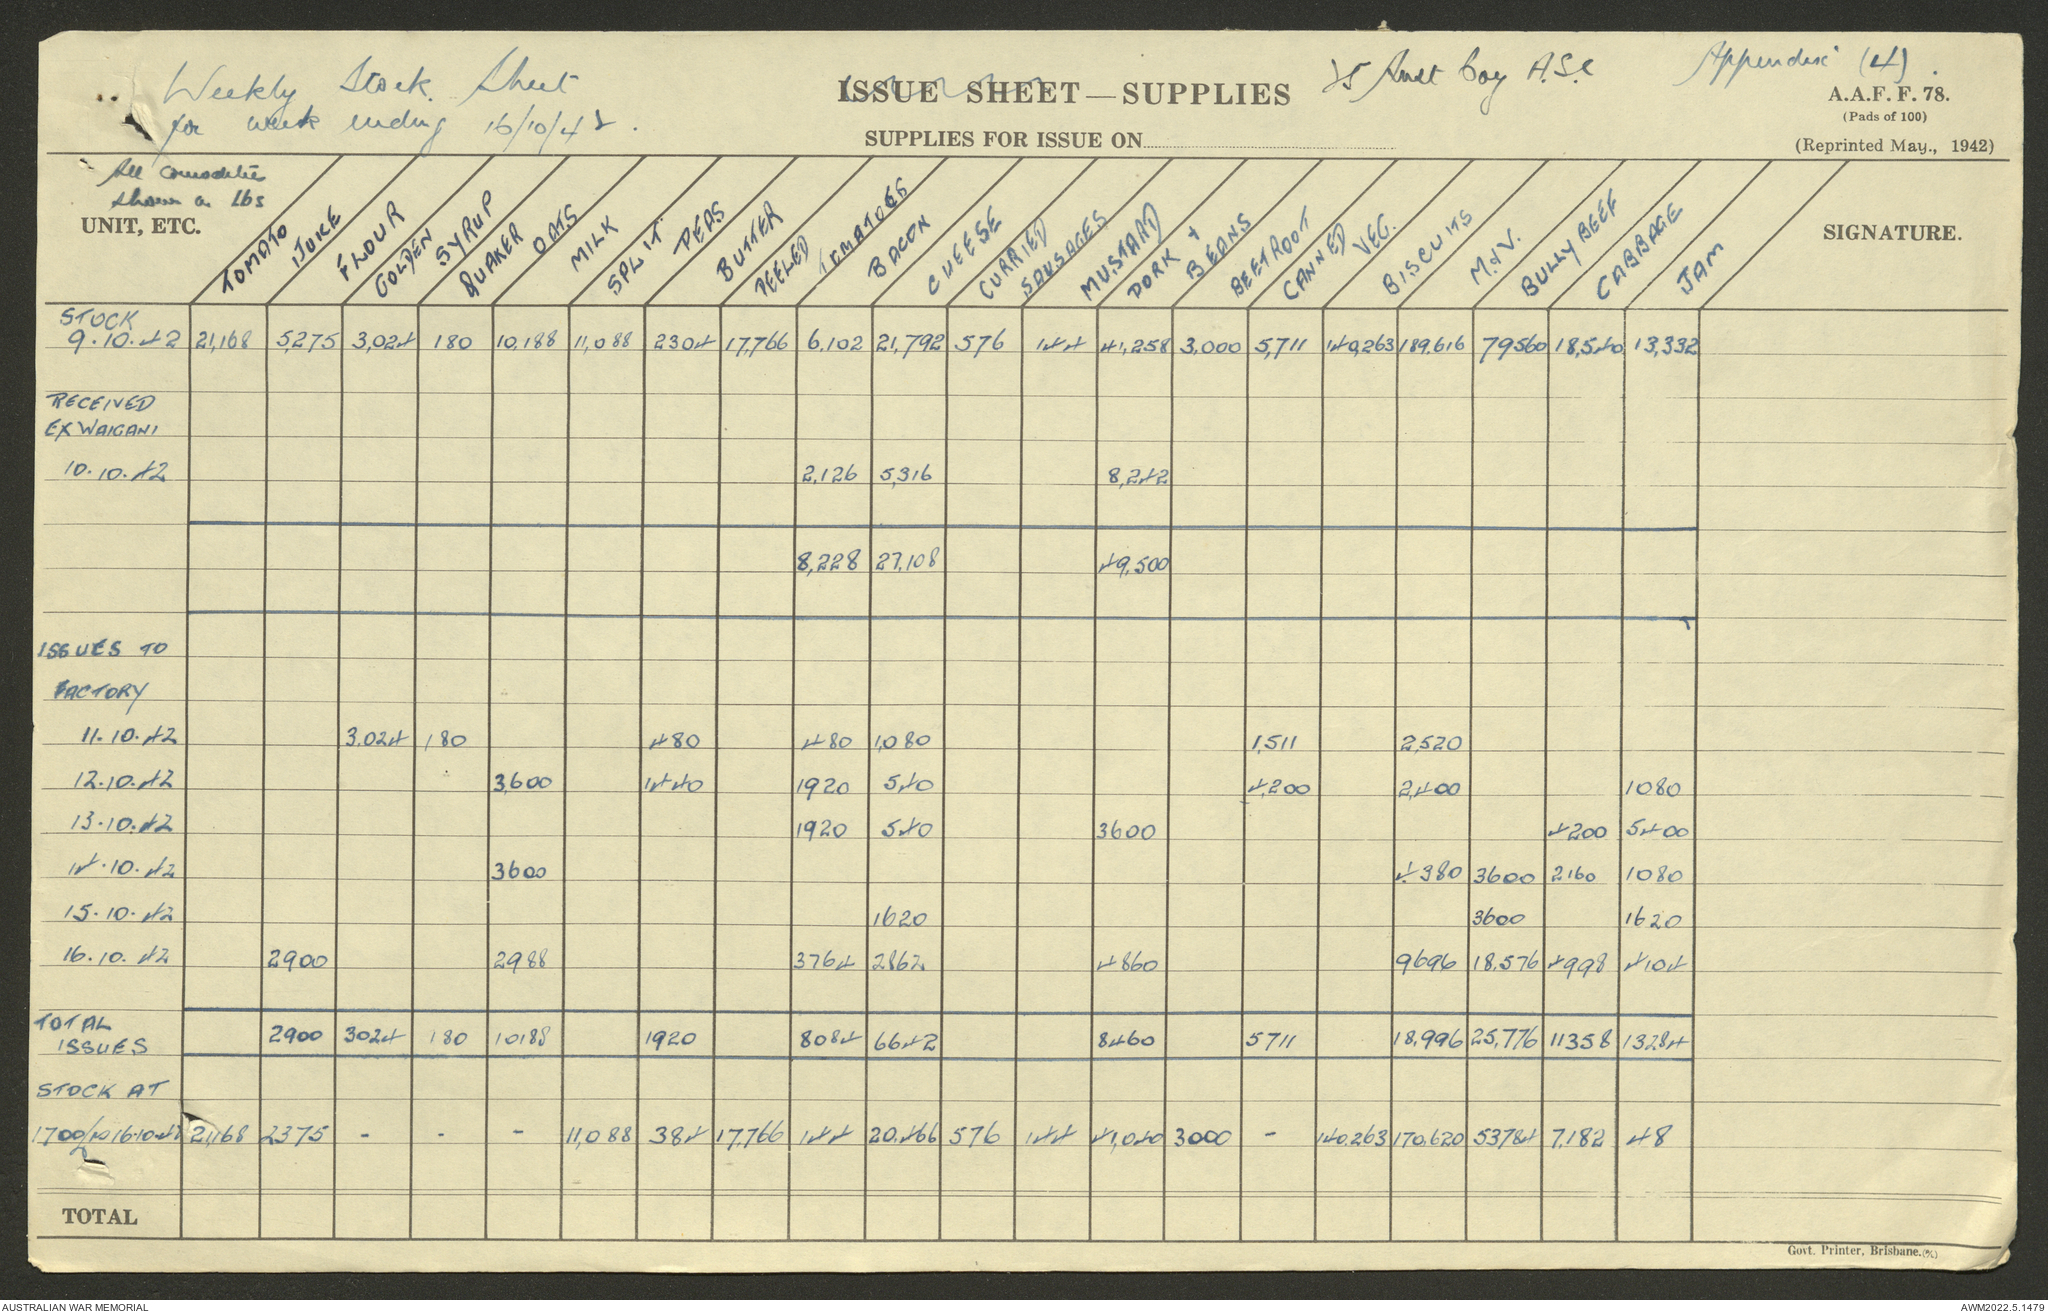 Weekly Stock Sheet
for week ending 16/10/42.
ISSUE SHEET — SUPPLIES
Coy A.S.C
Appendix (4).
A.A.F. F. 78.
(Pads of 100)
SUPPLIES FOR ISSUE ON
(Reprinted May., 1942)
All commodities
shown in lbs
UNIT, ETC.
TOMATO JUICE
FLOUR
GOLDEN SYRUP
QUAKER OATS
MILK
SPLIT PEAS
BUTTER
PEELED TOMATOES
BACON
CHEESE
CURRIED SAUSAGES
MUSTARD
PORK + BEANS
BEETROOT
CANNED VEG.
BISCUITS
M.&V.
BULLY BEEF
CABBAGE
JAM
SIGNATURE.
STOCK
9.10.42 21,168 5,275 3,024 180 10,188 11,088 2304 17,766 6,102 21,792 576 144 41,258 3,000 5,711 140,263 189,616 79560 18,540 13,332
RECEIVED
EX WAIGANI
10.10.42 2,126 5,316 8,242
8,228 27,108 49,500
ISSUES TO
FACTORY
11.10.42 3,024 180 480 480 1,080 1,511 2,520
12.10.42 3,600 1440 1920 540 4,200 2,400 1080
13.10.42 1920 540 3600 4200 5400
14.10.42 3600 4380 3600 2160 1080
15.10.42 1620 3600 1620
16.10.42 2900 2988 3764 2862 4860 9696 18,576 4998 4104
TOTAL
ISSUES 2900 3024 180 10188 1920 8084 6642 8460 5711 18,996 25,776 11358 13284
STOCK AT
1700/ 16.10.42 21,168 2375 - - - 11,088 384 17,766 144 20,466 576 144 41,040 3000 - 140,263 170,620 53784 7,182 48
TOTAL
Govt. Printer, Brisbane.
AUSTRALIAN WAR MEMORIAL
AWM2022.5.1479